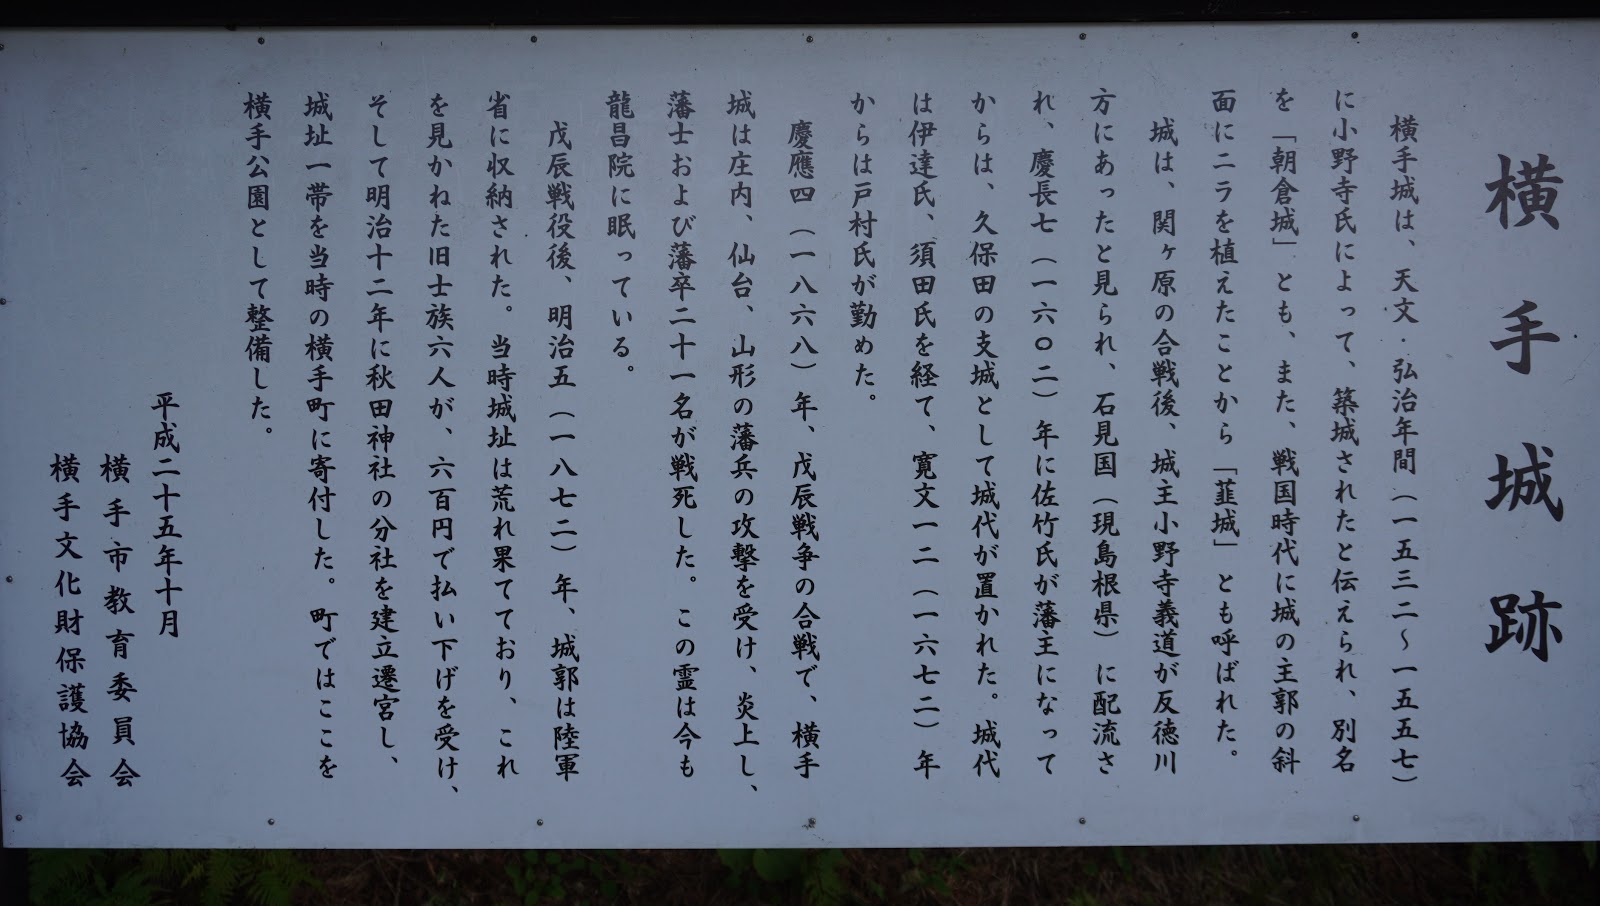 横手城跡
横手城は、天文・弘治年間（一五三二～一五五七）
に小野寺氏によって、築城されたと伝えられ、別名
を「朝倉城」とも、また、戦国時代に城の主郭の斜
面にニラを植えたことから「韮城」とも呼ばれた。
城は、関ヶ原の合戦後、城主小野寺義道が反徳川
方にあったと見られ、石見国（現島根県）に配流さ
れ、慶長七（一六〇二）年に佐竹氏が藩主になって
からは、久保田の支城として城代が置かれた。城代
は伊達氏、須田氏を経て、寛文一二（一六七二）年
からは戸村氏が勤めた。
慶應四（一八六八）年、戊辰戦争の合戦で、横手
城は庄内、仙台、山形の藩兵の攻撃を受け、炎上し、
藩士および藩卒二十一名が戦死した。この霊は今も
龍昌院に眠っている。
戊辰戦役後、明治五（一八七二）年、城郭は陸軍
省に収納された。当時城址は荒れ果てており、これ
を見かねた旧士族六人が、六百円で払い下げを受け、
そして明治十二年に秋田神社の分社を建立遷宮し、
城址一帯を当時の横手町に寄付した。町ではここを
横手公園として整備した。
平成二十五年十月
横手市教育委員会
横手文化財保護協会